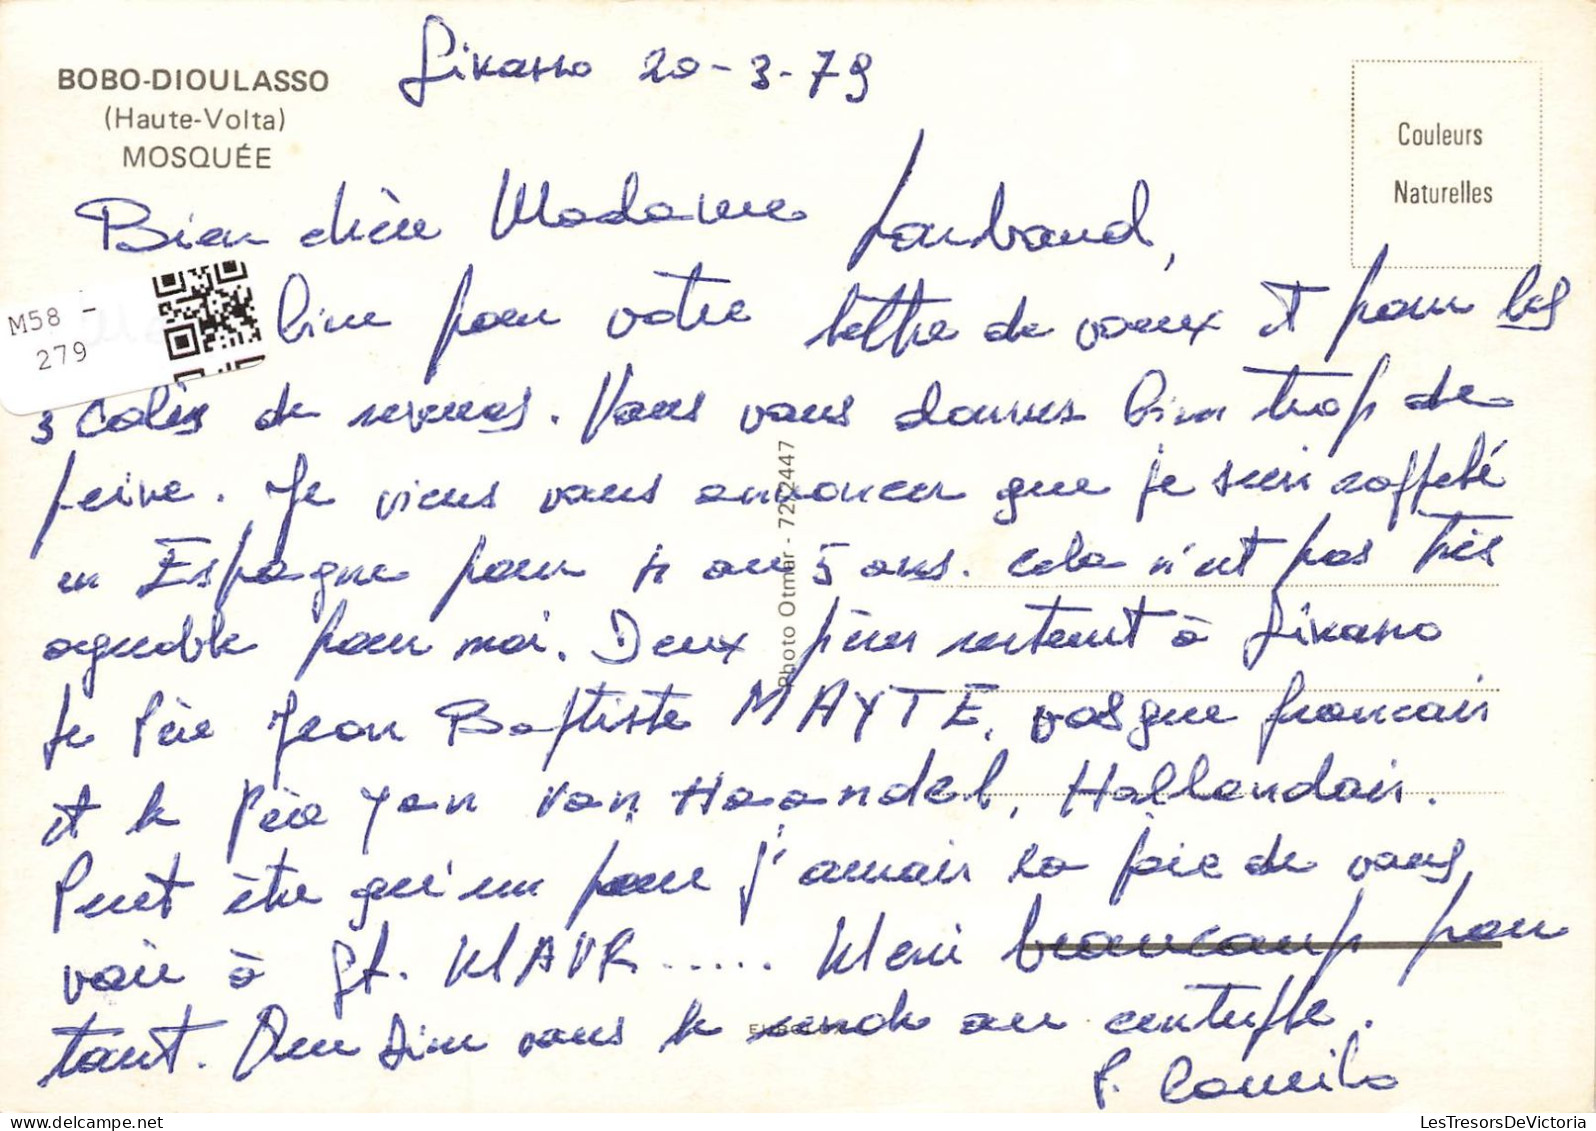 BOBO-DIOULASSO
(Haute-Volta)
MOSQUÉE
Sikasso 20-3-79
Couleurs
Naturelles
Bien chère Madame
M58 -
279
bien pour votre lettre de voeux et pour les
3 colis de revues. Vous vous donnez bien trop de
peine. Je viens vous annoncer que je suis rappelé
en Espagne pour 4 ou 5 ans. Cela n'est pas très
agréable pour moi. Deux pères restent à Sikasso
le Père Jean Baptiste MAYTE, basque francais
et le Père Yan Van Haandel, Hollandais.
Peut être qu'un jour j'aurais la joie de vous
voir à St. MAUR ..... Merci beaucoup pour
tant. Que Dieu vous le rende au centuple.
P. Camilo
Photo Otmar - 72/2447
LesTresorsDeVictoria